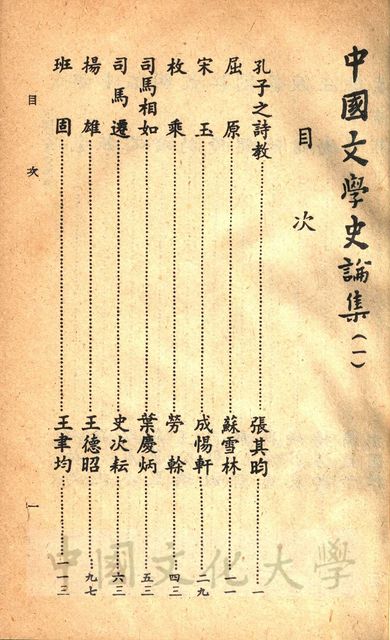 中國文學史論集(一)
目次
孔子之詩教……張其昀 一
屈原……蘇雪林 一一
宋玉……成惕軒 二九
枚乘……勞榦 四三
司馬相如……葉慶炳 五三
司馬遷……史次耘 六三
揚雄……王德昭 九七
班固……王聿均 一一三
目次
一
中國文化大學